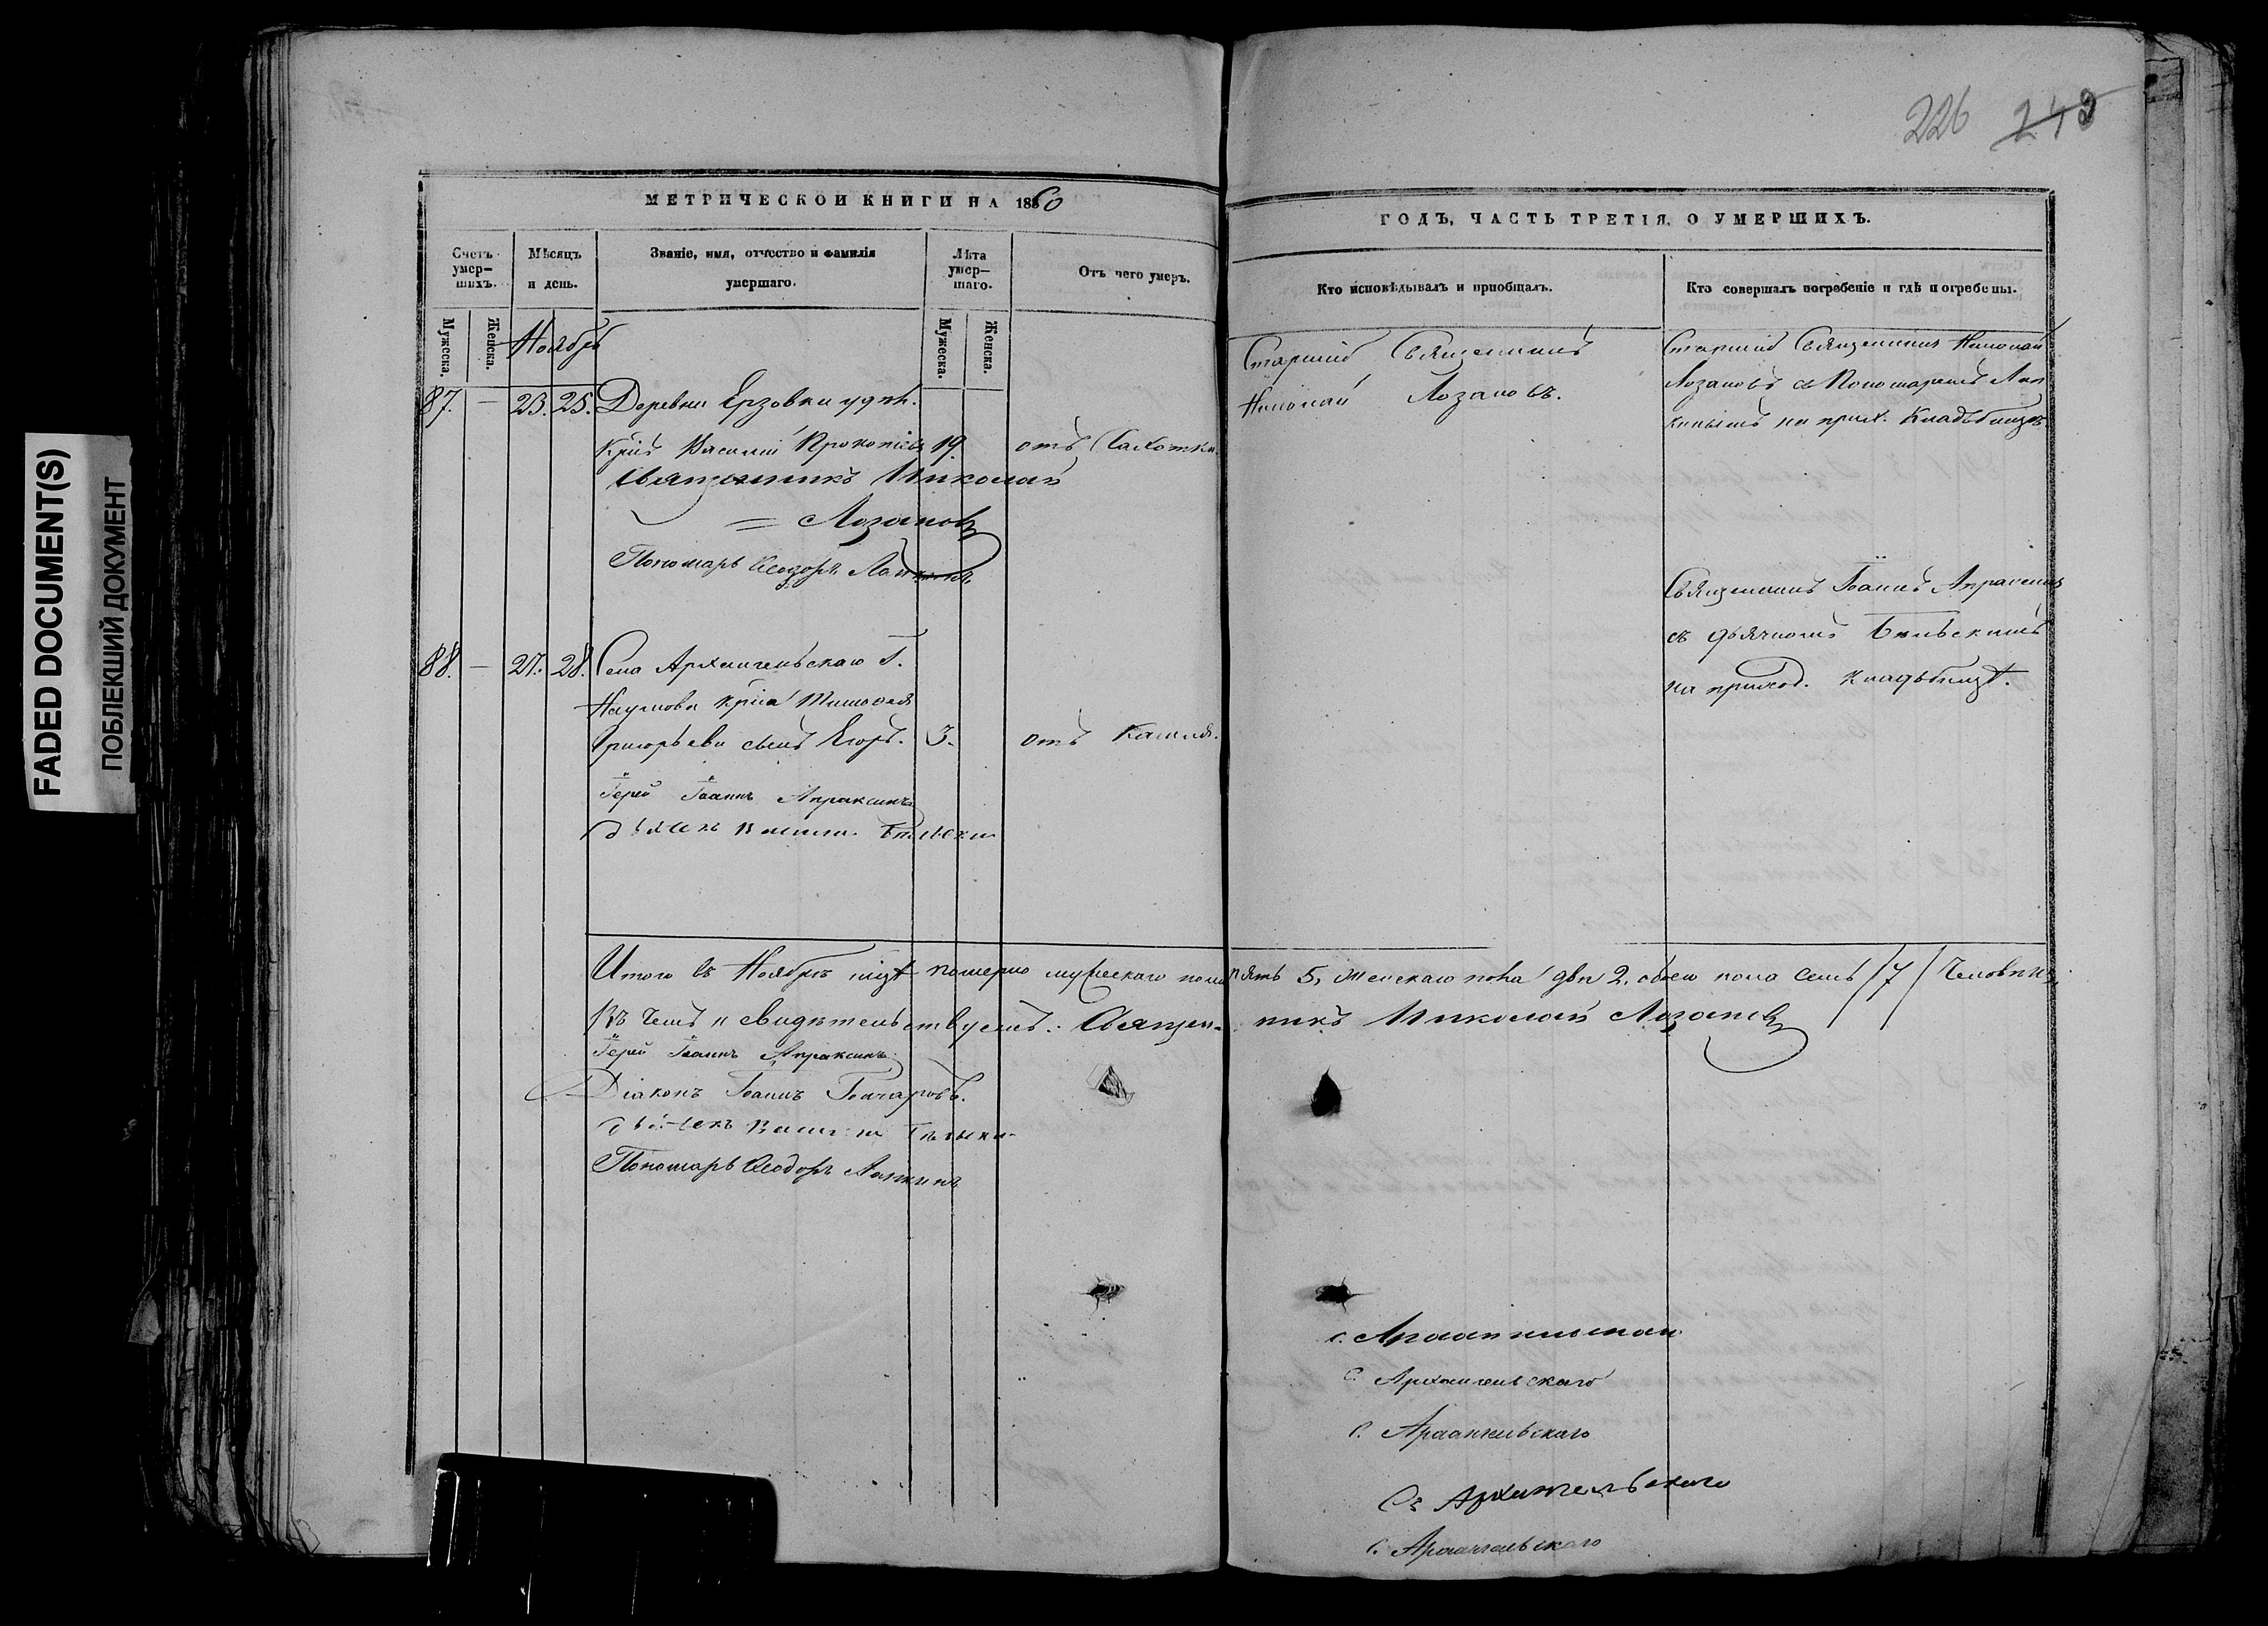 FADED DOCUMENT(S)
ПОБЛЕКШИЙ ДОКУМЕНТ
226 243
МЕТРИЧЕСКОЙ КНИГИ НА 1860
Счетъ умер-шихъ.
Мѣсяцъ и день.
Званіе, имя, отчество и фамилія умершаго.
Лѣта умер-шаго.
Отъ чего умеръ.
Мужеска.
Женска.
Мужеска.
Женска.
Ноябрь
87. — 23. 25. Деревни Ерзовки удѣл.
Крнъ Василій Прокопіевъ 19. отъ Чахотки.
Священникъ Николай
= Лозановъ
Пономарь Ѳеодоръ Лапкинъ
88. — 27. 28. Села Архангельскаго Г.
Наумова крна Тимоѳея
Григорьева сынъ Егоръ. 3. отъ Кашля.
Іерей Іоаннъ Апраксинъ
дьячекъ
Итого въ Ноябрѣ мцѣ померло мужескаго пола
Въ чемъ и свидѣтельствуемъ: Священ-
Іерей Іоаннъ Апраксинъ
Діаконъ Іоаннъ Гончаровъ.
дьячекъ
Пономарь Ѳеодоръ Лапкинъ
ГОДЪ, ЧАСТЬ ТРЕТІЯ, О УМЕРШИХЪ.
Кто исповѣдывалъ и пріобщалъ.
Кто совершалъ погребеніе и гдѣ погребены.
Старшій Священникъ
Николай Лозановъ.
Старшій Священникъ Николай
Лозановъ съ Пономаремъ Лап
кинымъ на прих. Кладбищѣ
Священникъ Іоаннъ Апраксинъ
съ дьячкомъ Бѣльскимъ
на приход. кладбищѣ.
пять 5, женскаго пола двѣ 2. обоего пола семь /7/ Человѣкъ,
никъ Николай Лозановъ
с. Архангельскаго
С. Архангельскаго
С. Архангельскаго
С. Архангельскаго
С. Архангельскаго